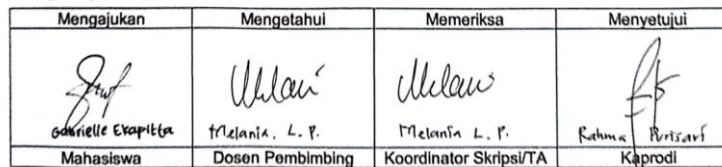 Mengajukan Mengetahui Memeriksa Menyetujui
Gabrielle Ekapitta Melania. L. P. Melania L. P. Rahma Purisari
Mahasiswa Dosen Pembimbing Koordinator Skripsi/TA Kaprodi